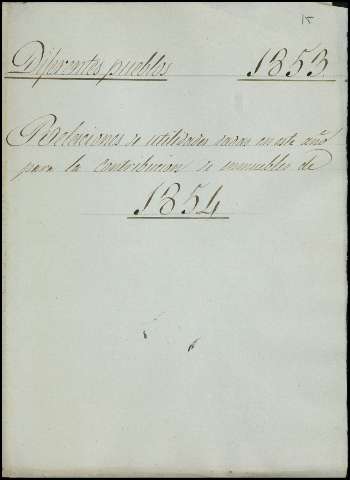 Diferentes pueblos 1853
Relaciones de utilidades dadas en este año
para la contribucion de inmuebles de
1854